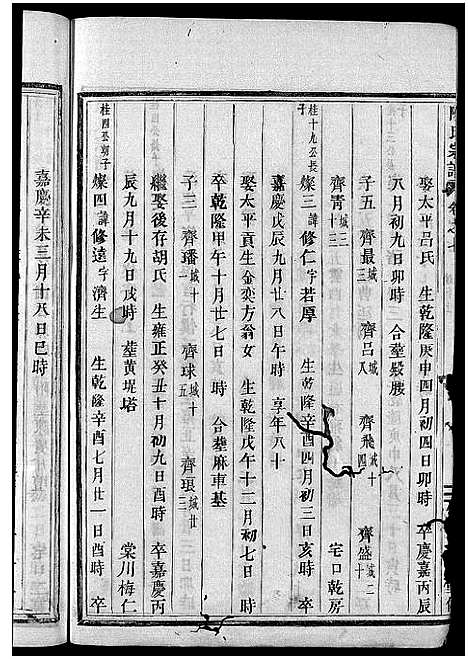 陳氏宗譜 卷之七
娶太平呂氏 生乾隆庚申四月初四日卯時 卒慶嘉丙辰
八月初九日卯時 合塟髮腋
子五 齊最城三 齊呂城八 齊飛城十四 齊盛城二十
齊青城二十三 宅口乾房
桂十九公長子
燦三諱修仁字若厚 生乾隆辛酉四月初三日亥時 卒
嘉慶戊辰九月廿八日午時 享年八十
娶太平貢生金奕方翁女 生乾隆戊午十二月初七日 時
卒乾隆甲午十月廿七日 時 合塟麻車基
子三 齊璠城十 齊球城十五 齊琅城廿三
繼娶後存胡氏 生雍正癸丑十月初九日酉時 卒嘉慶丙
辰九月十九日戌時 塟黄堤塔 棠川梅仁
桂四公朝子
燦四諱修遠字濟生 生乾隆辛酉七月廿一日酉時 卒
嘉慶辛未三月十八日巳時